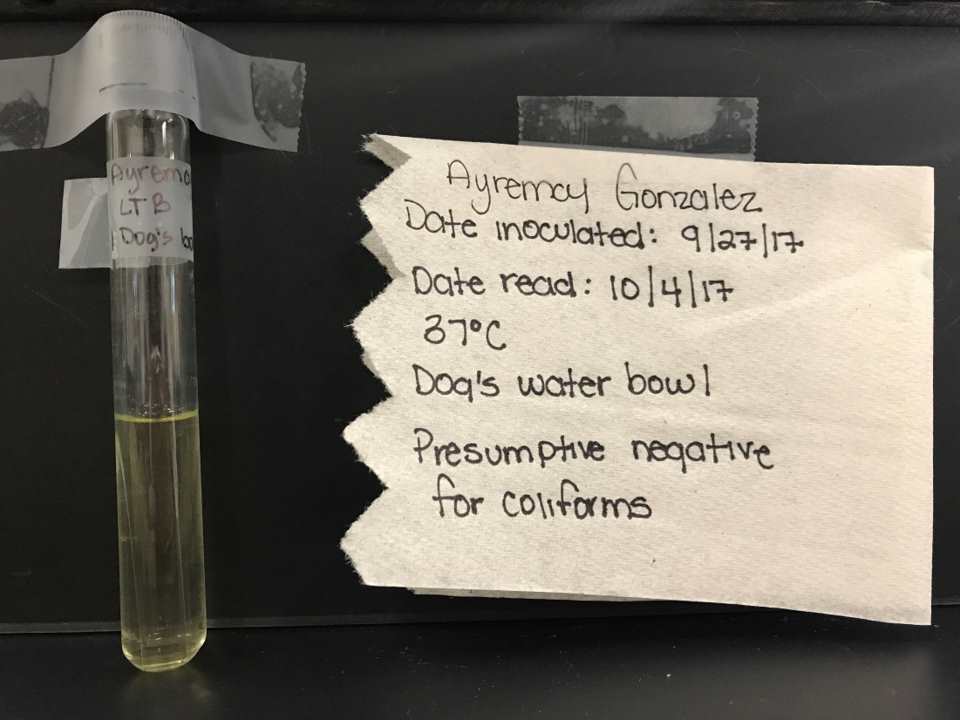 Ayrema
LTB
Dog's bo
Ayremay Gonzalez
Date inoculated: 9/27/17
Date read: 10/4/17
37°C
Dog's water bowl
Presumptive negative
for coliforms